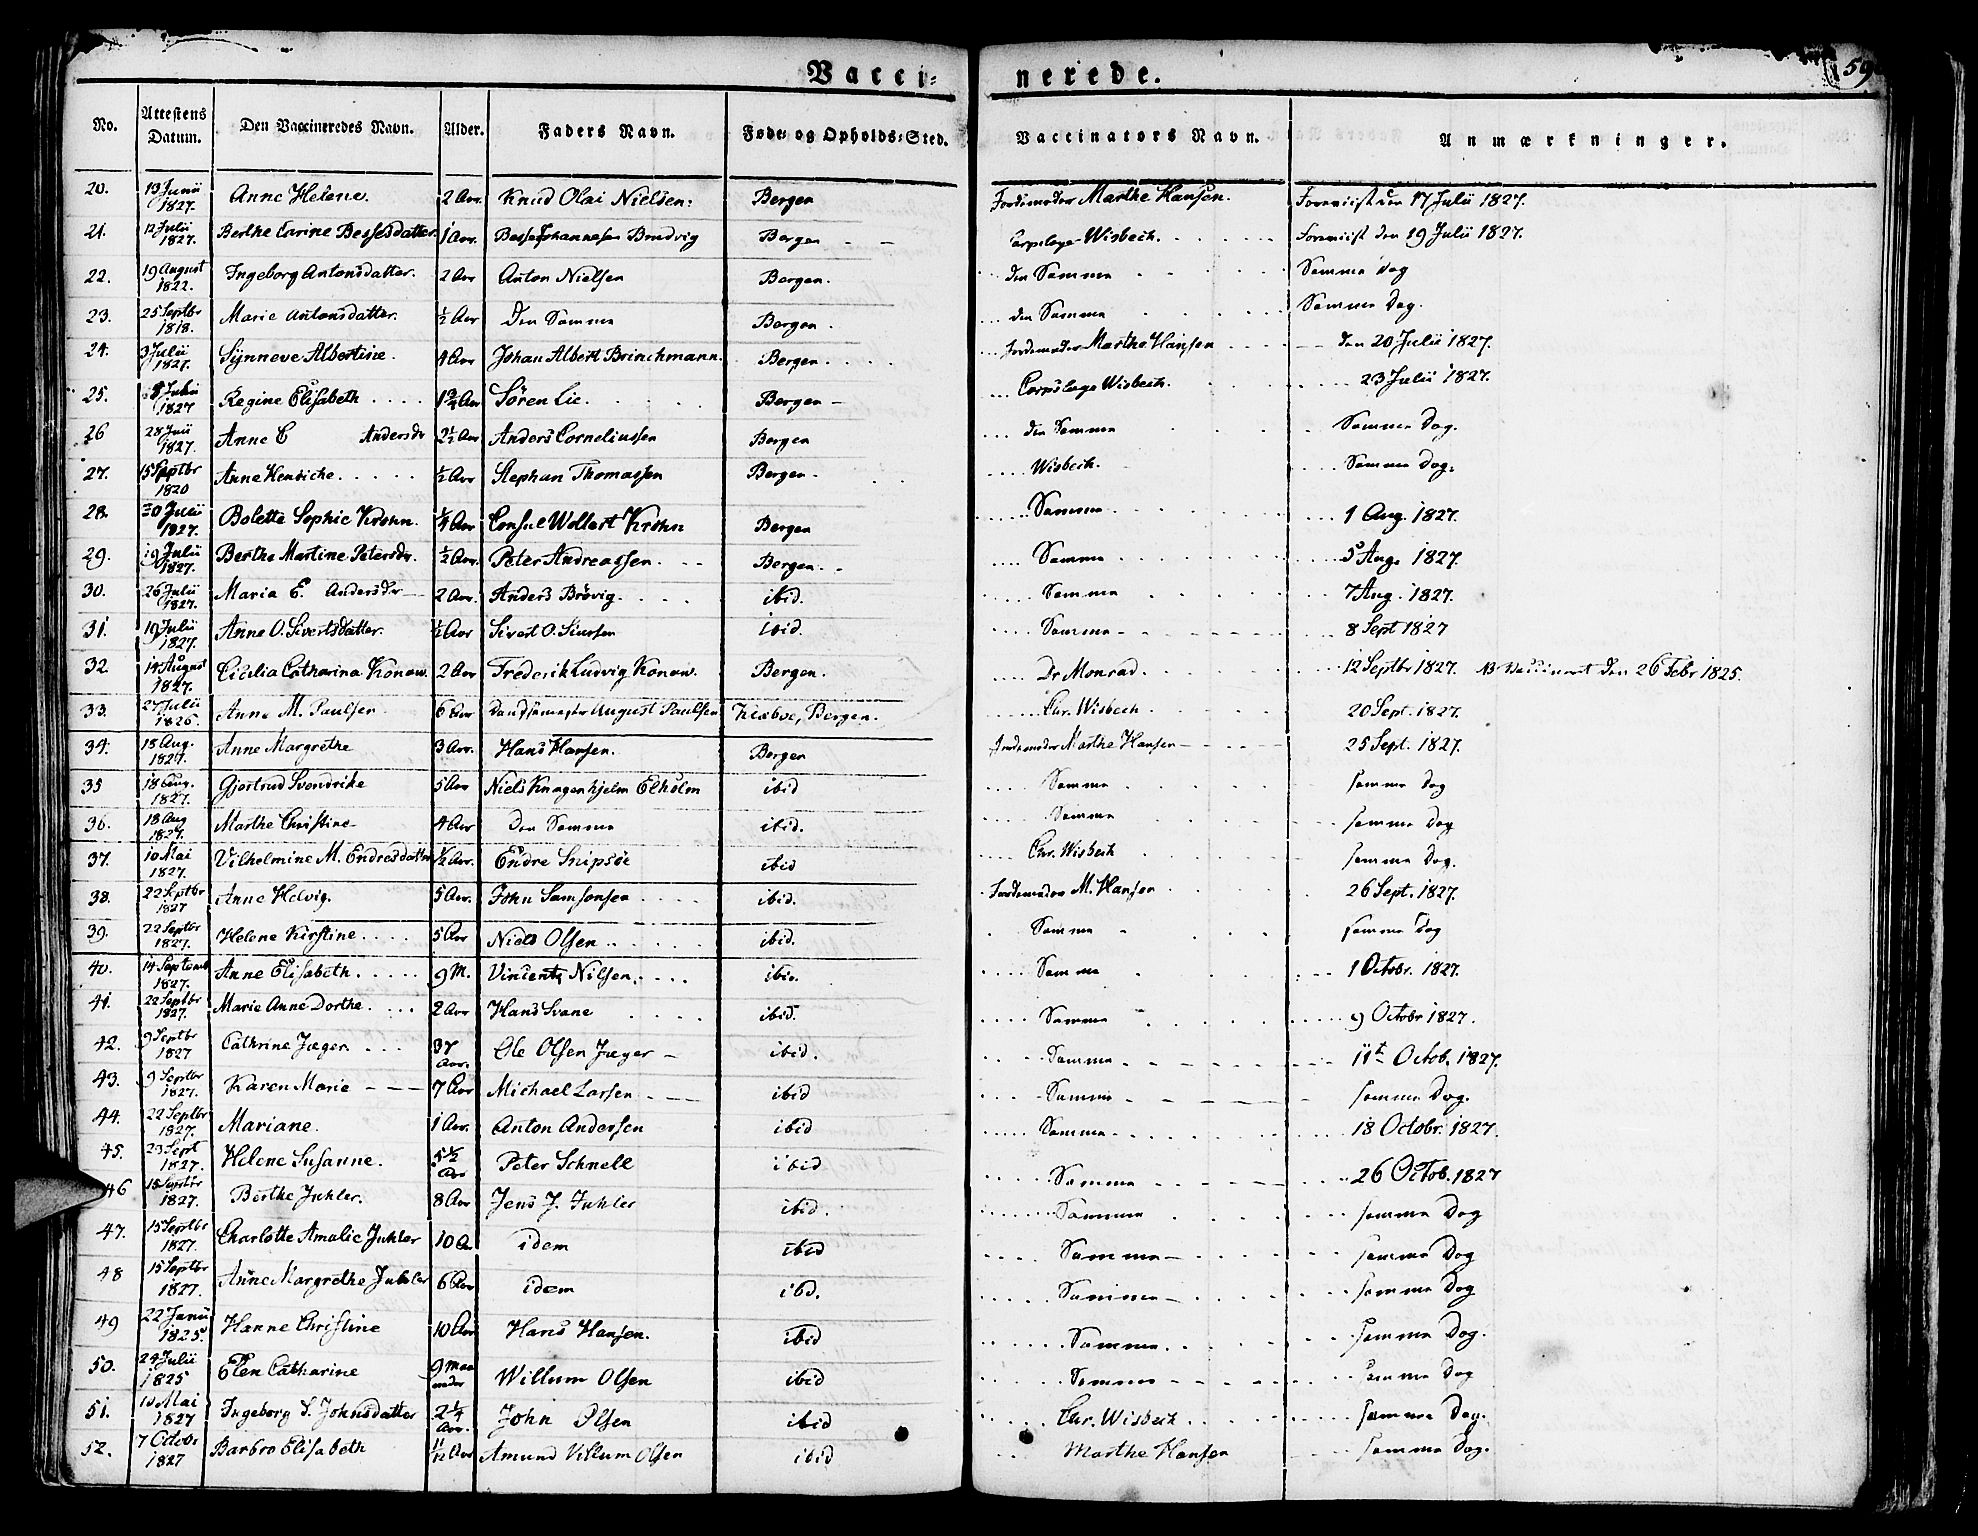 Vacci-
nerede.
59
No. Attestens Datum. Den Vaccineredes Navn. Alder. Faders Navn. Føde- og Opholds-Sted. Vaccinators Navn. Anmærkninger.
20. 13 Junii 1827. Anne Helene. 2 Aar. Knud Olai Nielsen. Bergen Jordemoder Marthe Hansen. Foreviist den 17 Julii 1827.
21. 12 Julii 1827. Berthe Carine Bessesdatter 1 Aar. Besse Johannesen Bradvig Bergen Corpslæge Wisbech. Foreviist den 19 Julii 1827.
22. 19 August 1822. Ingeborg Antonsdatter. 2 Aar Anton Nielsen Bergen. den Samme Samme Dag
23. 25 Septbr 1818. Marie Antonsdatter. ½ Aar Den Samme Bergen. den Samme Samme Dag.
24. 3 Julii 1827. Synneve Albertine. 4 Aar Johan Albert Brinchmann. Bergen. Jordemoder Marthe Hansen den 20 Julii 1827.
25. 8 Julii 1827 Regine Elisabeth 1¾ Aar Sören Lie. Bergen Corpslæge Wisbech. 23 Julii 1827.
26 28 Juii 1827. Anne C Andersdr 2½ Aar Anders Corneliussen Bergen den Samme Samme Dag.
27. 15 Septbr 1820 Anne Henriche. ½ Aar Stephan Thomassen Bergen. Wisbech. Samme Dag.
28. 30 Julii 1827. Bolette Sophie Krohn. ¼ Aar Consul Wollert Krohn Bergen Samme 1 Aug. 1827.
29. 19 Julii 1827. Berthe Martine Petersdr. ½ Aar. Peter Andreassen. Bergen. Samme 5 Aug. 1827.
30. 26 Julii 1827. Maria E. Andersdr 2 Aar. Anders Brøvig. ibid. Samme 7 Aug. 1827.
31. 19 Julii 1827. Anne O. Sivertsdatter. ½ Aar Sivert O. Siursen ibid. Samme 8 Sept 1827
32. 14 August 1827. Cicilia Catharina Konow. 2 Aar Frederik Ludvig Konow. Bergen. Dr Monrad. 12 Septbr 1827. NB Vaccineret den 26 Febr 1825.
33. 27 Julii 1826. Anna M. Paulsen 6 Aar August Paulsen Klæboe, Bergen. Chr. Wisbech 20 Sept. 1827.
34. 18 Aug. 1827. Anne Margrethe 3 Aar. Hans Hansen. Bergen Jordemoder Marthe Hansen 25 Sept. 1827.
35 18 Aug. 1827. Gjertrud Svendrike 5 Aar Niels Knagenhjelm Elholm ibid Samme samme Dag
36. 18 Aug 1827. Marthe Christine 4 Aar Den Samme ibid. Samme samme Dag
37. 10 Mai 1827. Vilhelmine M. Endresdatter ½ Aar. Endre Snipsöe ibid Chr. Wisbech samme Dag.
38. 22 Septbr 1827 Anne Helvig. 5 Aar. John Samsonsen ibid. Jordemoder M. Hansen 26 Sept. 1827.
39. 22 Septbr 1827. Helene Kirstine 5 Aar Niels Olsen ibid. Samme samme Dag
40. 14 Septemb 1827. Anne Elisabeth. 9 M. Vincentz Nilsen. ibid. Samme 1 Octobr. 1827.
41. 22 Septbr 1827. Marie Anne Dorthe. 2 Aar Hans Svane ibid. Samme 9 Octobr 1827.
42. 9 Septbr 1827 Cathrine Jæger 37 Aar. Ole Olsen Jæger ibid. Samme 11te Octob. 1827.
43. 9 Septbr 1827. Karen Marie 7 Aar Michael Larsen ibid Samme samme Dag.
44. 22 Septbr 1827. Mariane. 1 Aar. Anton Andersen ibid Samme 18 Octobr. 1827.
45. 23 Sept 1827. Helene Susanne. 5½ Aar Peter Schnell ibid Samme 26 Octob. 1827
46 15 Septbr 1827. Berthe Juhler. 8 Aar Jens J. Juhler ibid. Samme samme Dag
47. 15 Septbr 1827. Charlotte Amalie Juhler 10 A idem ibid Samme samme Dag
48 15 Septbr 1827. Anne Margrethe Juhler 6 Aar idem ibd. Samme samme Dag
49 22 Junii 1825. Hanne Christine 10 Aar Hans Hansen. ibid Samme samme Dag.
50. 24 Julii 1825 Elen Catharine 9 Maaneder Willum Olsen ibid Samme samme Dag
51. 10 Mai 1827 Ingeborg S. Johnsdatter 2¼ Aar. John Olsen ibid Chr. Wisbech samme Dag.
52. 7 Octobr 1827 Barbro Elisabeth 11/12 Aar Amund Villum Olsen ibid Marthe Hansen samme Dag.